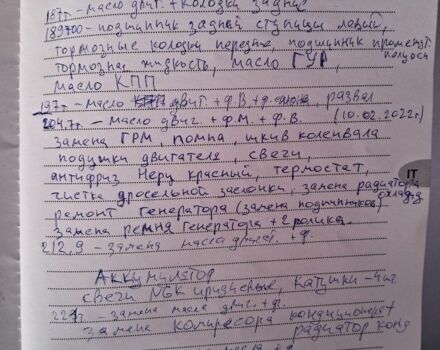 187т - масло двиг. + колодки задние
189700 - подшипник задней ступицы левый,
тормозные колодки передние, подшипник промежут.
полуоси
тормозная жидкость, масло ГУР,
масло КПП
197т - масло двиг. + ф.В. + ф. салона, развал
204.7т - масло двиг. + ф.М. + ф.В. (10.02.2022г)
замена ГРМ, помпа, шкив коленвала
подушки двигателя, свечи,
антифриз Hepu красный, термостат,
чистка дросельной заслонки, замена радиатора
охлажд.
ремонт генератора (замена подшипников)
замена ремня генератора + 2 ролика.
212,9 - замена масла двиг. + ф.
IT
Аккумулятор
свечи NGK иридиевые, катушки - 4шт.
227т - замена масла двиг. + ф.
замена компресора кондиционера
радиатор конд